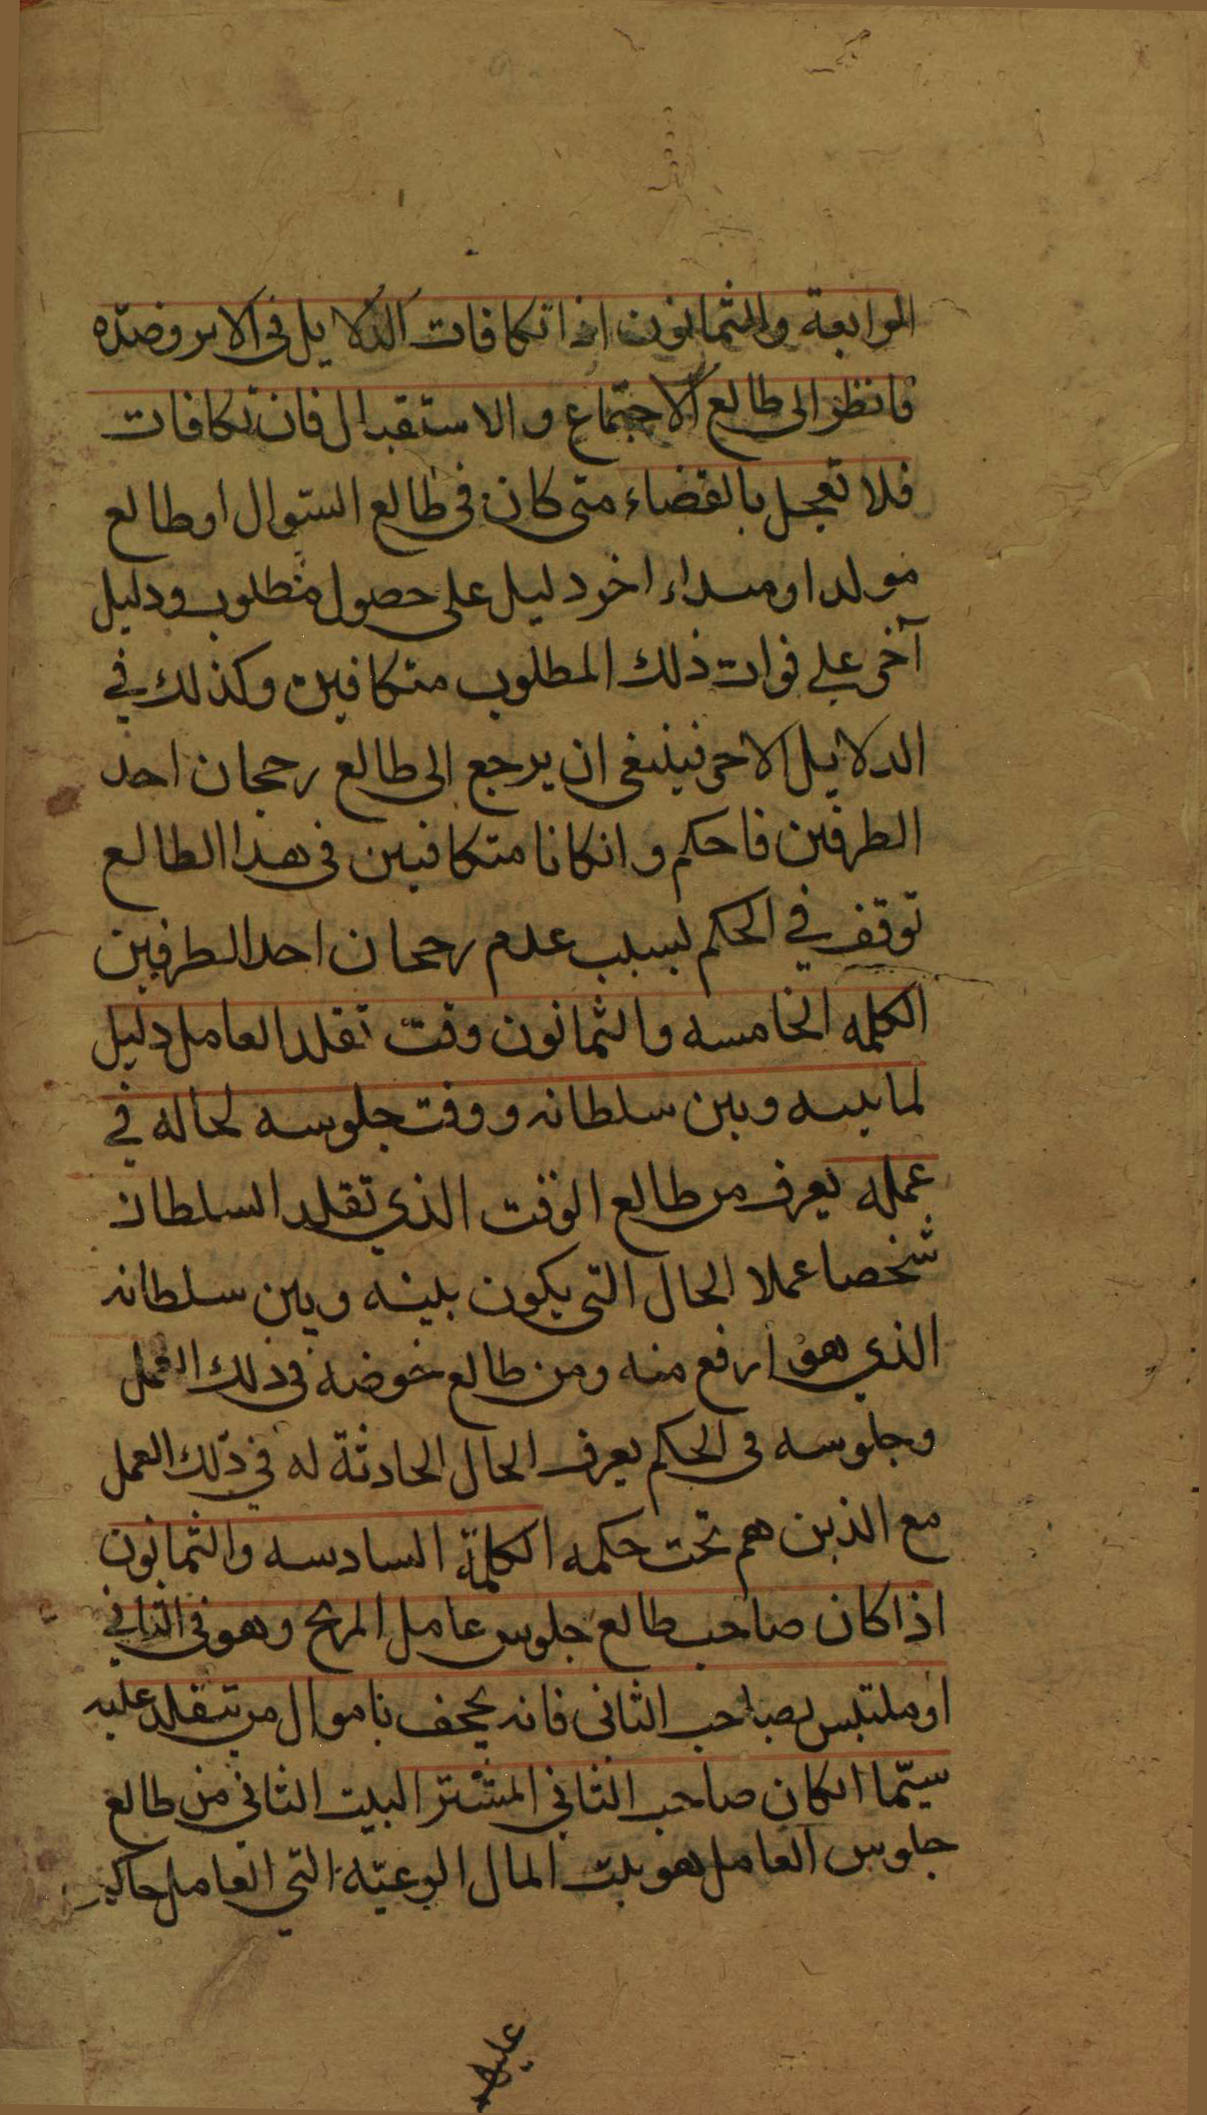 الرابعة والثمانون اذا تكافات الدلايل فى الامر وضدّه
فانظر الى طالع الاجتماع والاستقبال فان تكافات
فلا تعجل بالقضاء متى كان فى طالع السوال او طالع
مولد او مبداء اخر دليل على حصول مطلوب ودليل
آخر على فوات ذلك المطلوب متكافين وكذلك في
الدلايل الاخر فينبغى ان يرجع الى طالع رحجان احد
الطرفين فاحكم وانكانا متكافيين فى هذا الطالع
توقف في الحكم بسبب عدم رحجان احد الطرفين
الكلمه الخامسه والثمانون وقت تقلد العامل دليل
لما بينه وبين سلطانه ووقت جلوسه لحاله في
عمله يعرف من طالع الوقت الذي تقلد السلطان
شخصا عملا الحال التى يكون بينه وبين سلطانه
الذي هو ارفع منه ومن طالع خوضه فى ذلك العمل
وجلوسه فى الحكم يعرف الحال الحادثة له في ذلك العمل
مع الذين هم تحت حكمه الكلمة السادسه والثمانون
اذا كان صاحب طالع جلوس عامل المريخ وهو فى الثاني
او ملتبس بصاحب الثانى فانه يجحف باموال من تتقلد عليه
سيّما انكان صاحب الثاني المشتر البيت الثاني من طالع
جلوس العامل هو بيت المال الرعيّة التي العامل حاكم
عليها